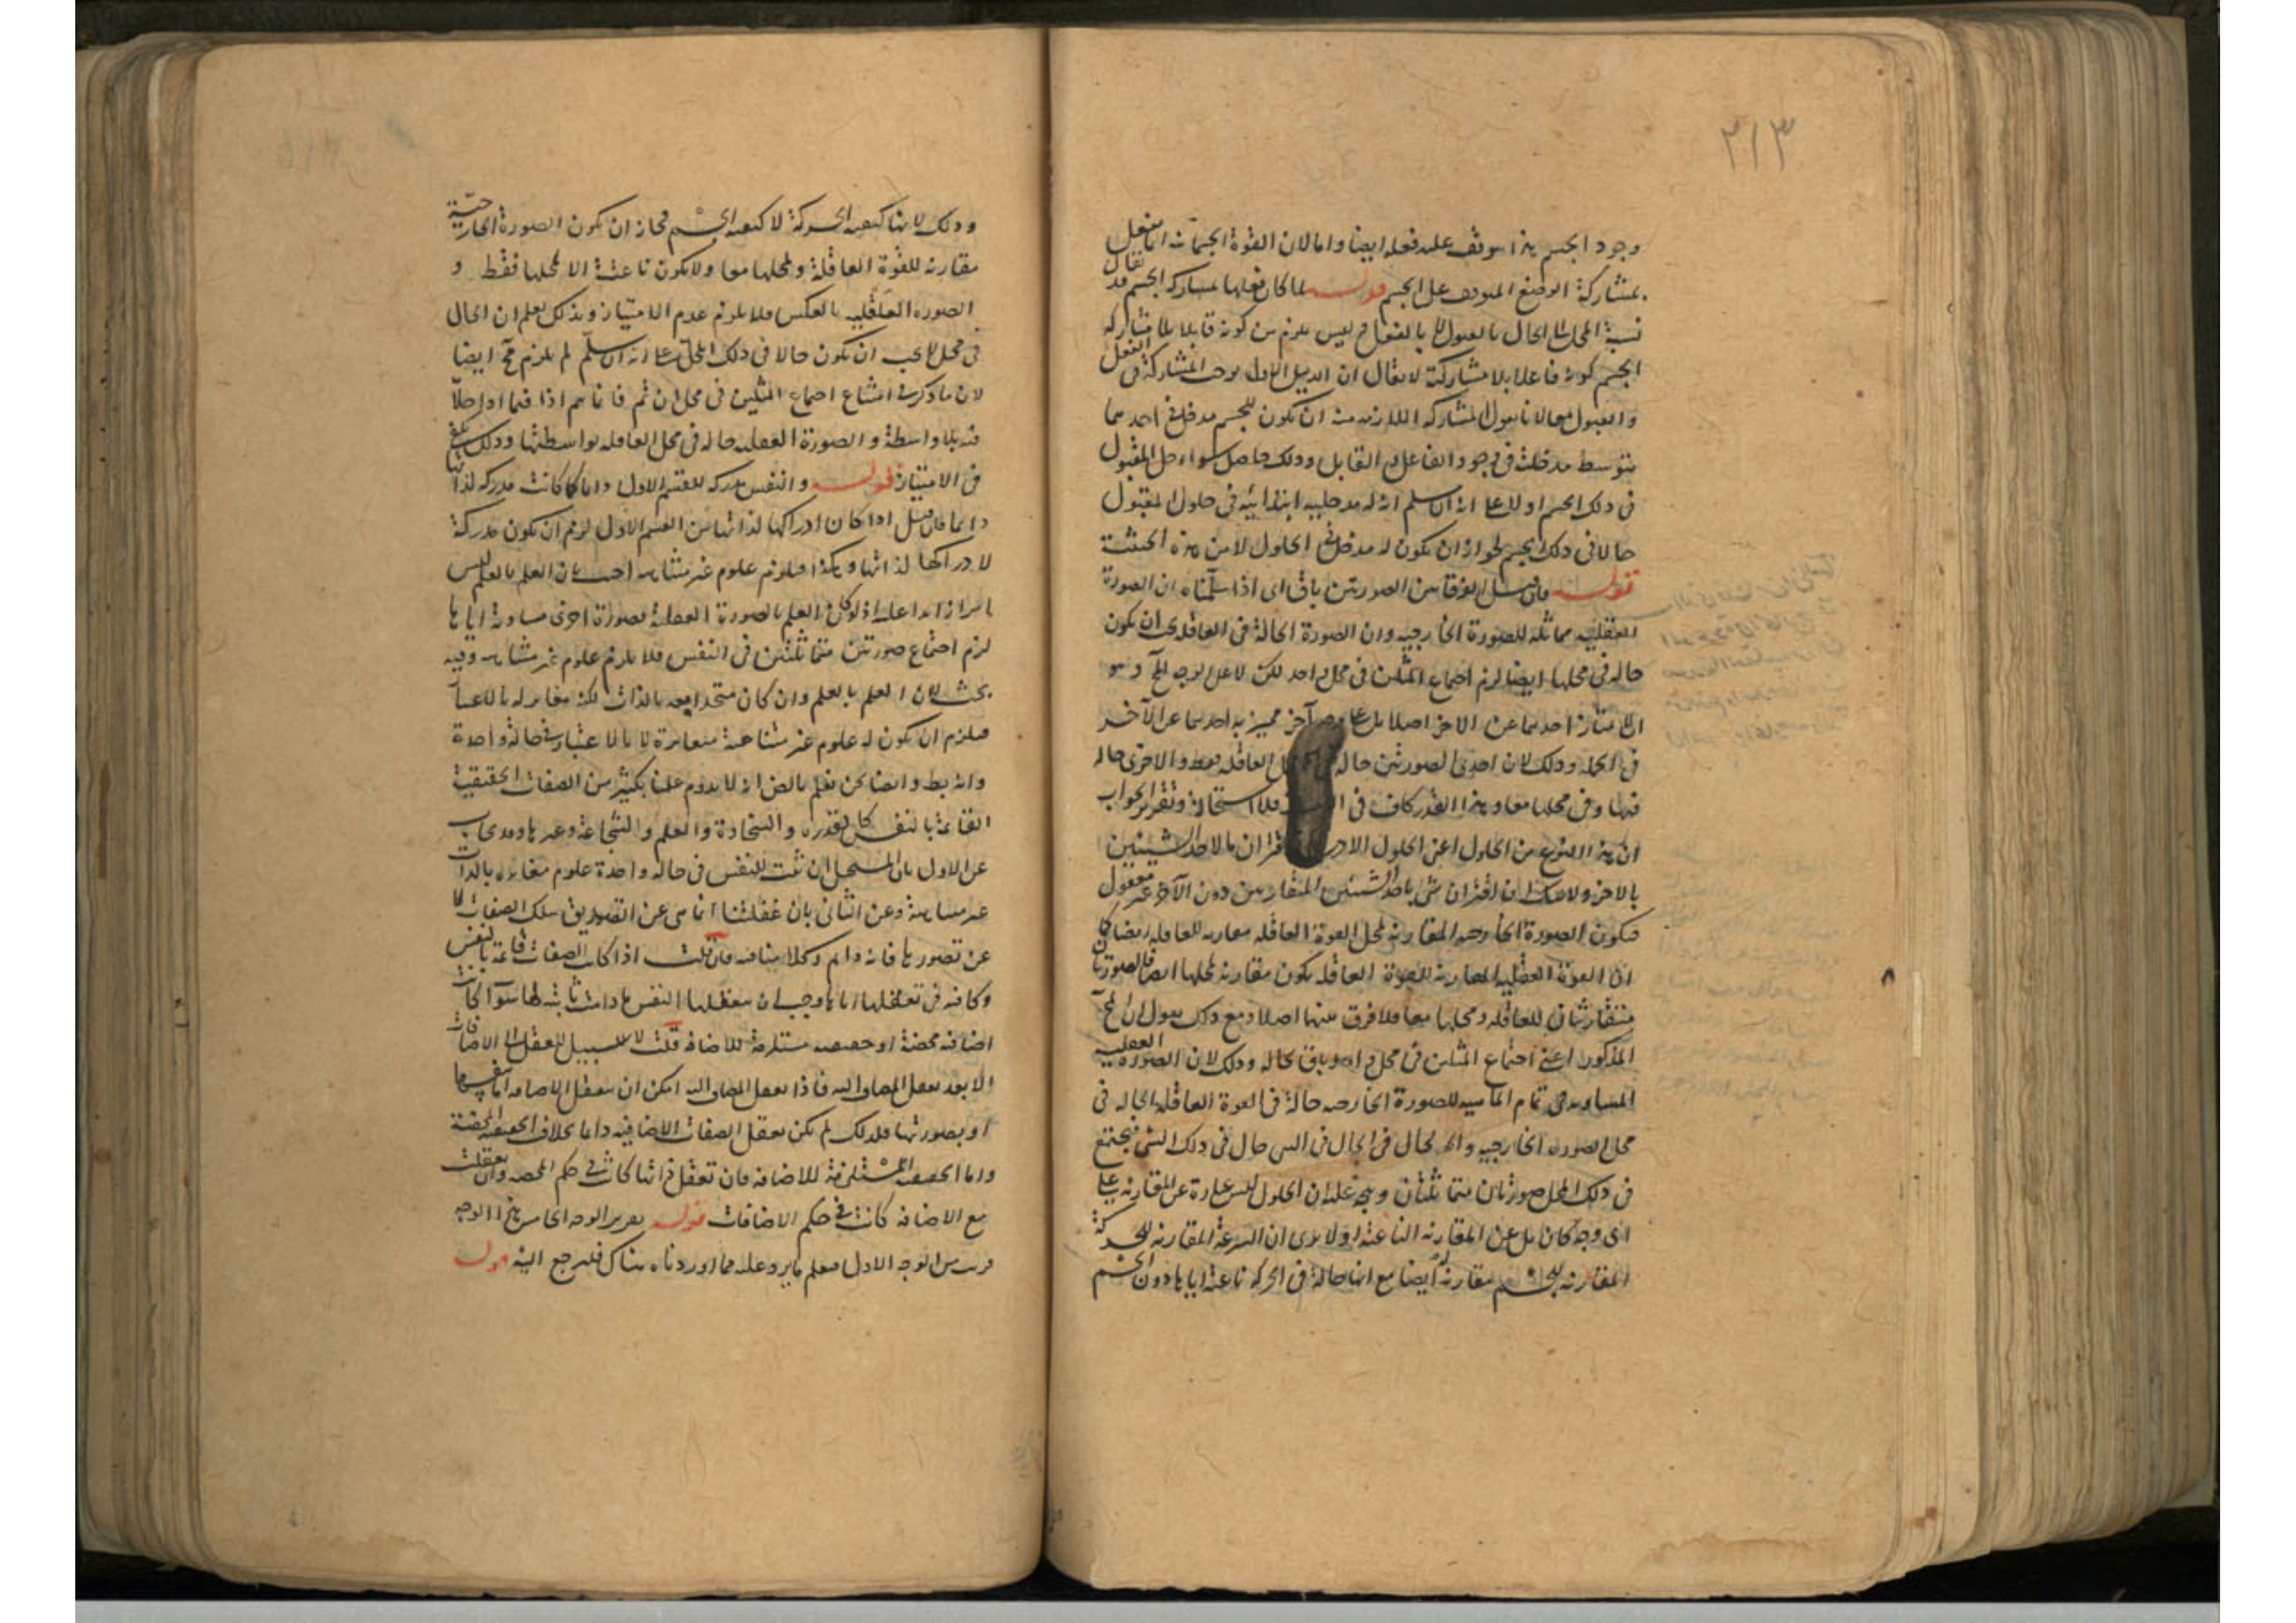 ٣١٣
وجود الجسم هذا موقف عليه فعله ايضا واما لان القوة الجسمانية انما تفعل
بمشاركة الوضع المتوقف على الجسم قوله لما كان فعلها بمشاركة الجسم قد يقال
نسبة المحل الى الحال بالقبول لا بالفعل وليس يلزم من كونه قابلا بلا مشاركة
الجسم كونه فاعلا بلا مشاركته لا يقال ان الدليل الاول يوجب المشاركة في الفعل
والقبول معا لانا نقول المشاركة اللازمة منه ان يكون للجسم مدخل في احدهما
بتوسط مدخليته في وجود الفاعل او القابل وذلك حاصل سواء حل المقبول
في ذلك الجسم او لا على انه ان سلم انه له مدخلية ابتدائية في حلول المقبول
حالا في ذلك الجسم لجواز ان يكون له مدخل في الحلول لا من هذه الحيثية
قوله فان قيل الفرق بين الصورتين باق اى اذا سلمناه ان الصورة
العقلية مماثلة للصورة الخارجية وان الصورة الحالة في العاقلة يجب ان يكون
حالة في محلها ايضا لزم اجتماع المثلين في محل واحد لكن لا على الوجه المح وهو
ان لا يمتاز احدهما عن الاخر اصلا بل على وجه آخر مميز به احدهما عن الآخر
في الجملة وذلك لان احدى الصورتين حالة في محل العاقلة فقط والاخرى حالة
فيها وفي محلها معا وهذا القدر كاف في فلا استحالة وتقرير الجواب
ان هذا النوع من الحلول اعنى الحلول اقتران ما لاحد الشيئين
بالاخر ولا شك ان اقتران شئ باحد الشيئين المتقارنين دون الآخر غير معقول
فيكون الصورة الخارجية المقارنة لمحل القوة العاقلة مقارنة للعاقلة ايضا كما
ان القوة العقلية المقارنة للقوة العاقلة يكون مقارنة لمحلها ايضا فالصورتان
متقارنتان للعاقلة ومحلها معا فلا فرق بينهما اصلا ومع ذلك نقول ان المح
المذكور اعنى اجتماع المثلين في محل واحد باق بحاله وذلك لان الصورة العقلية
المساوية في تمام الماهية للصورة الخارجية حالة في القوة العاقلة الحالة في
محل الصورة الخارجية والحال في الحال في الشئ حال في ذلك الشئ فيجتمع
في ذلك المحل صورتان متماثلتان ويتجه عليه ان الحلول ليس عبارة عن المقارنة على
اى وجه كان بل عن المقارنة الناعتة اولا يرى ان السرعة المقارنة للحركة
المقارنة للجسم مقارنة له ايضا مع انها حالة في الحركة ناعتة اياها دون الجسم
وذلك لانها كيفية الحركة لا كيفية الجسم فجاز ان يكون الصورة الخارجية
مقارنة للقوة العاقلة ولمحلها معا ولا يكون ناعتة الا لمحلها فقط و
الصورة العقلية بالعكس فلا يلزم عدم الامتياز وبذلك يعلم ان الحال
في محل لا يجب ان يكون حالا في ذلك المحل على انه ان سلم لم يلزم مح ايضا
لان ما ذكر في امتناع اجتماع المثلين في محل ان تم فانما يتم اذا فيما اذا حلا
فيه بلا واسطة والصورة العقلية حالة في محل العاقلة بواسطتها وذلك يكفي
في الامتياز قوله والنفس مدركة للقسم الاول دائما كما كانت مدركة لذاتها
دائما فان قيل اذا كان ادراكها لذاتها من القسم الاول لزم ان يكون مدركة
لادراكها لذاتها وهكذا فيلزم علوم غير متناهية اجيب بان العلم بالعلم ليس
امرا زائدا عليه اذ لو كان العلم بالصورة العقلية بصورة اخرى مساوية اياها
لزم اجتماع صورتين متماثلتين في النفس فلا يلزم علوم غير متناهية وفيه
بحث لان العلم بالعلم وان كان متحدا معه بالذات لكنه مغاير له بالاعتبار
فيلزم ان يكون له علوم غير متناهية متغايرة لا بالاعتبار في حالة واحدة
وانه بط وايضا نحن نعلم بالض انه لا يدوم علمنا بكثير من الصفات الحقيقية
القائمة بالنفس كالقدرة والسخاوة والعلم والشجاعة وغيرها وقد يجاب
عن الاول بان المستحيل ان يثبت للنفس في حالة واحدة علوم متغايرة بالذات
غير متناهية وعن الثاني بان غفلتنا انما هي عن التصديق بتلك الصفات لا
عن تصورها فانه دائم وكلا منافيه فان قلت اذا كانت الصفات قائمة بالنفس
وكافية في تعقلها اياها وجب ان تعقلها النفس ما دامت ثابتة لها سواء كانت
اضافة محضة او حقيقية مستلزمة للاضافة قلت لا سبيل للعقل الى الاضافات
الا بعد تعقل المضاف اليه فاذا تعقل المضاف اليه امكن ان تعقل الاضافة اما بنفسها
او بصورتها فلذلك لم يكن تعقل الصفات الاضافية دائما بخلاف الحقيقية المحضة
واما الحقيقية المستلزمة للاضافة فان تعقل ذاتها كانت في حكم المحضة وان تعقلت
مع الاضافة كانت في حكم الاضافات قوله تقرير الوجه الخامس هذا الوجه
قريب من الوجه الاول فيعلم ما يرد عليه مما اوردناه هناك فليرجع اليه قوله